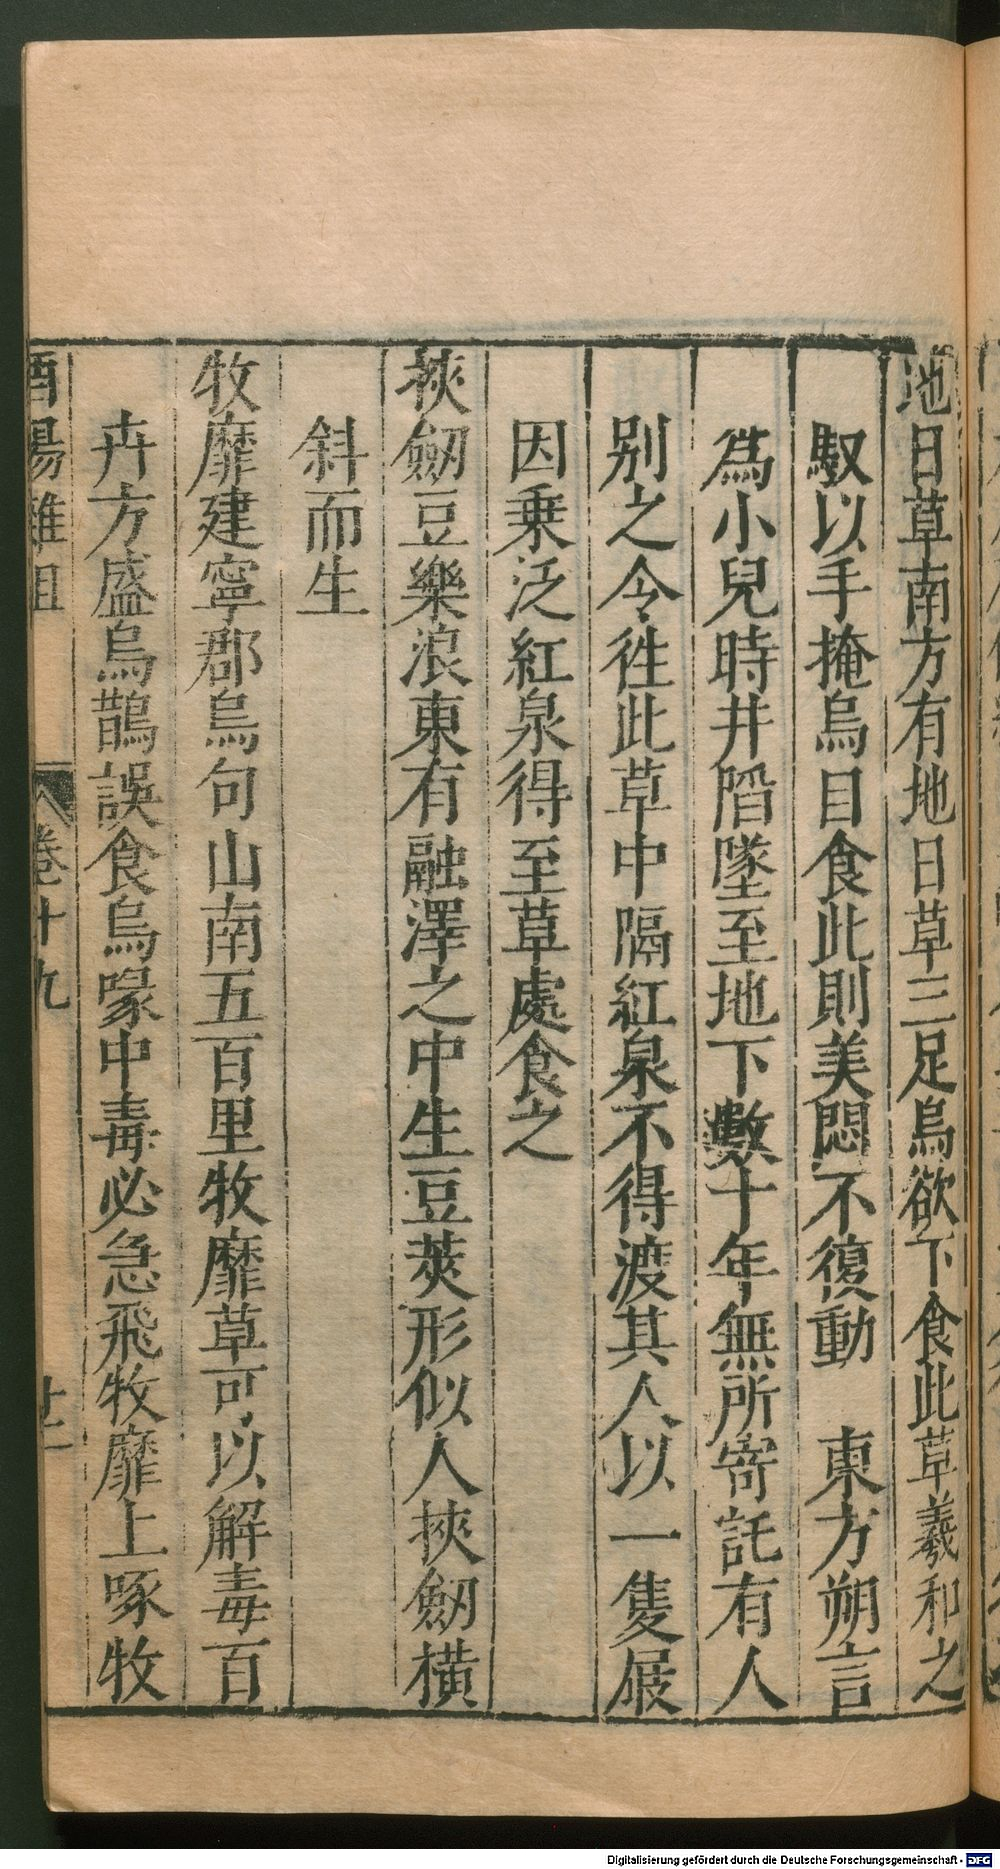 地日草南方有地日草三足烏欲下食此草羲和之
馭以手掩烏目食此則美悶不復動　東方朔言
為小兒時井陷墜至地下數十年無所寄託有人
别之令徃此草中隔紅泉不得渡其人以一隻屐
因乗泛紅泉得至草處食之
挾劒豆樂浪東有融澤之中生豆莢形似人挾劒橫
斜而生
牧靡建寧郡烏句山南五百里牧靡草可以解毒百
卉方盛烏鵲誤食烏喙中毒必急飛牧靡上啄牧
酉陽雜俎　卷十九　廿一
Digitalisierung gefördert durch die Deutsche Forschungsgemeinschaft - DFG